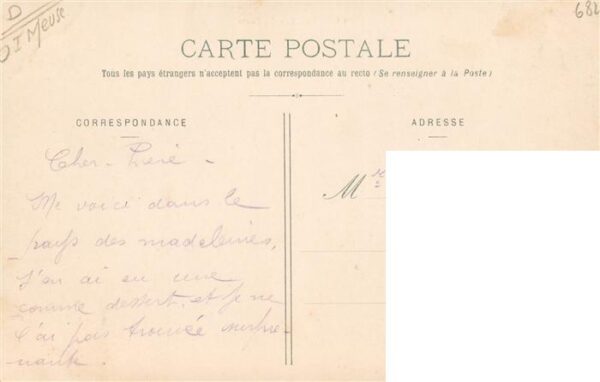 D
Meuse
682
CARTE POSTALE
Tous les pays étrangers n'acceptent pas la correspondance au recto (Se renseigner à la Poste)
CORRESPONDANCE
ADRESSE
Cher
M
Me voici dans le
pays des madeleines,
J'en ai eu une
comme dessert, et je ne
l'ai pas trouvée surpre-
nante.